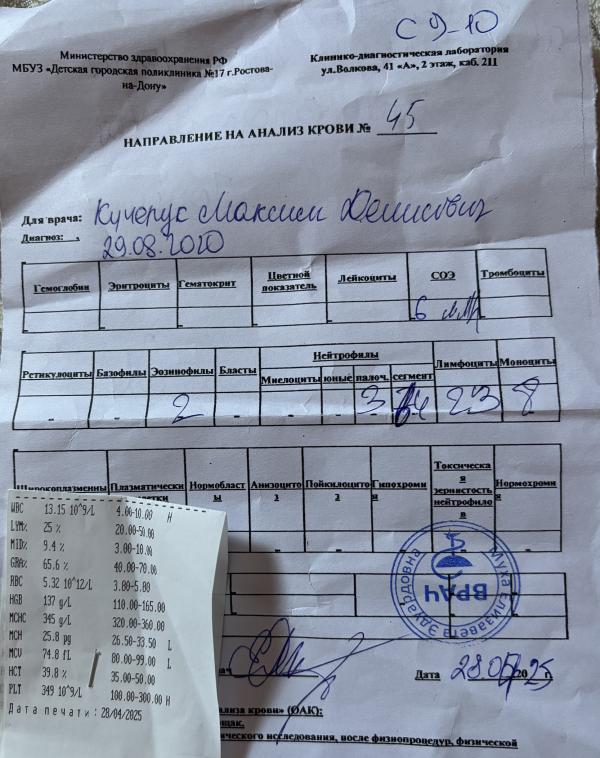 С 9-10
Министерство здравоохранения РФ
МБУЗ «Детская городская поликлиника №17 г.Ростова-
на-Дону»
Клинико-диагностическая лаборатория
ул.Волкова, 41 «А», 2 этаж, каб. 211
НАПРАВЛЕНИЕ НА АНАЛИЗ КРОВИ № 45
Для врача: Кучерук Максим Денисович
Диагноз: 29.08.2020
Гемоглобин Эритроциты Гематокрит Цветной показатель Лейкоциты СОЭ Тромбоциты
6 мм/
Ретикулоциты Базофилы Эозинофилы Бласты Нейтрофилы Лимфоциты Моноциты
Миелоциты юные палоч. сегмент
- - 2 - - - 3 64 23 8
Широкоплазменны Плазматически Нормобласты Анизоцитоз Пойкилоцитоз Гипохромия Токсическая зернистость нейтрофилов Нормохромия
етки
WBC 13.15 10^9/L 4.00-10.00 H
LYM% 25 % 20.00-50.00
MID% 9.4 % 3.00-10.00
GRA% 65.6 % 40.00-70.00
RBC 5.32 10^12/L 3.80-5.80
HGB 137 g/L 110.00-165.00
MCHC 345 g/L 320.00-360.00
MCH 25.8 pg 26.50-33.50 L
MCV 74.8 fL 80.00-99.00 L
HCT 39.8 % 35.00-50.00
PLT 349 10^9/L 100.00-300.00 H
Дата печати: 28/04/2025
ВРАЧ
Муха Елизавета Эдуардовна
Дата 28.04.2025г.
ализа крови» (ОАК):
ощак,
ического исследования, после физиопроцедур, физической